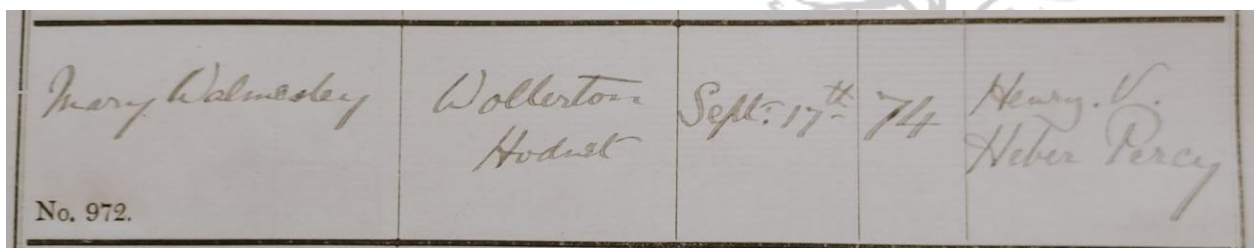 Mary Walmesley
No. 972.
Wollerton
Hodnet
Sept: 17th
74
Henry. V.
Heber Percy